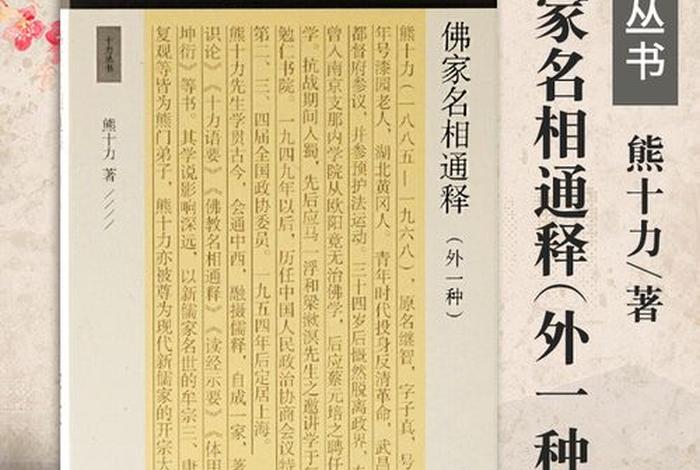 丛书
熊十力/著
家名相通释(外一种
佛家名相通释(外一种)
熊十力(一八八五—一九六八),原名继智,字子真,号
年号漆园老人,湖北黄冈人。青年时代投身反清革命,武昌
都督府参议,并参预护法运动。三十四岁后慨然脱离政界,
曾入南京支那内学院从欧阳竟无治佛学,后应蔡元培之聘任
学。抗战期间入蜀,先后应马一浮和梁漱溟先生之邀讲学于
勉仁书院。一九四九年以后,历任中国人民政治协商会议特
第二、三、四届全国政协委员。一九五四年后定居上海。
熊十力先生学贯古今,会通中西,融摄儒释,自成一家,著
识论》《十力语要》《佛教名相通释》《读经示要》《体用
坤衍》等书。其学说影响深远,以新儒家名世的牟宗三、唐
复观等皆为熊门弟子,熊十力亦被尊为现代新儒家的开宗大
十力丛书
熊十力 著////